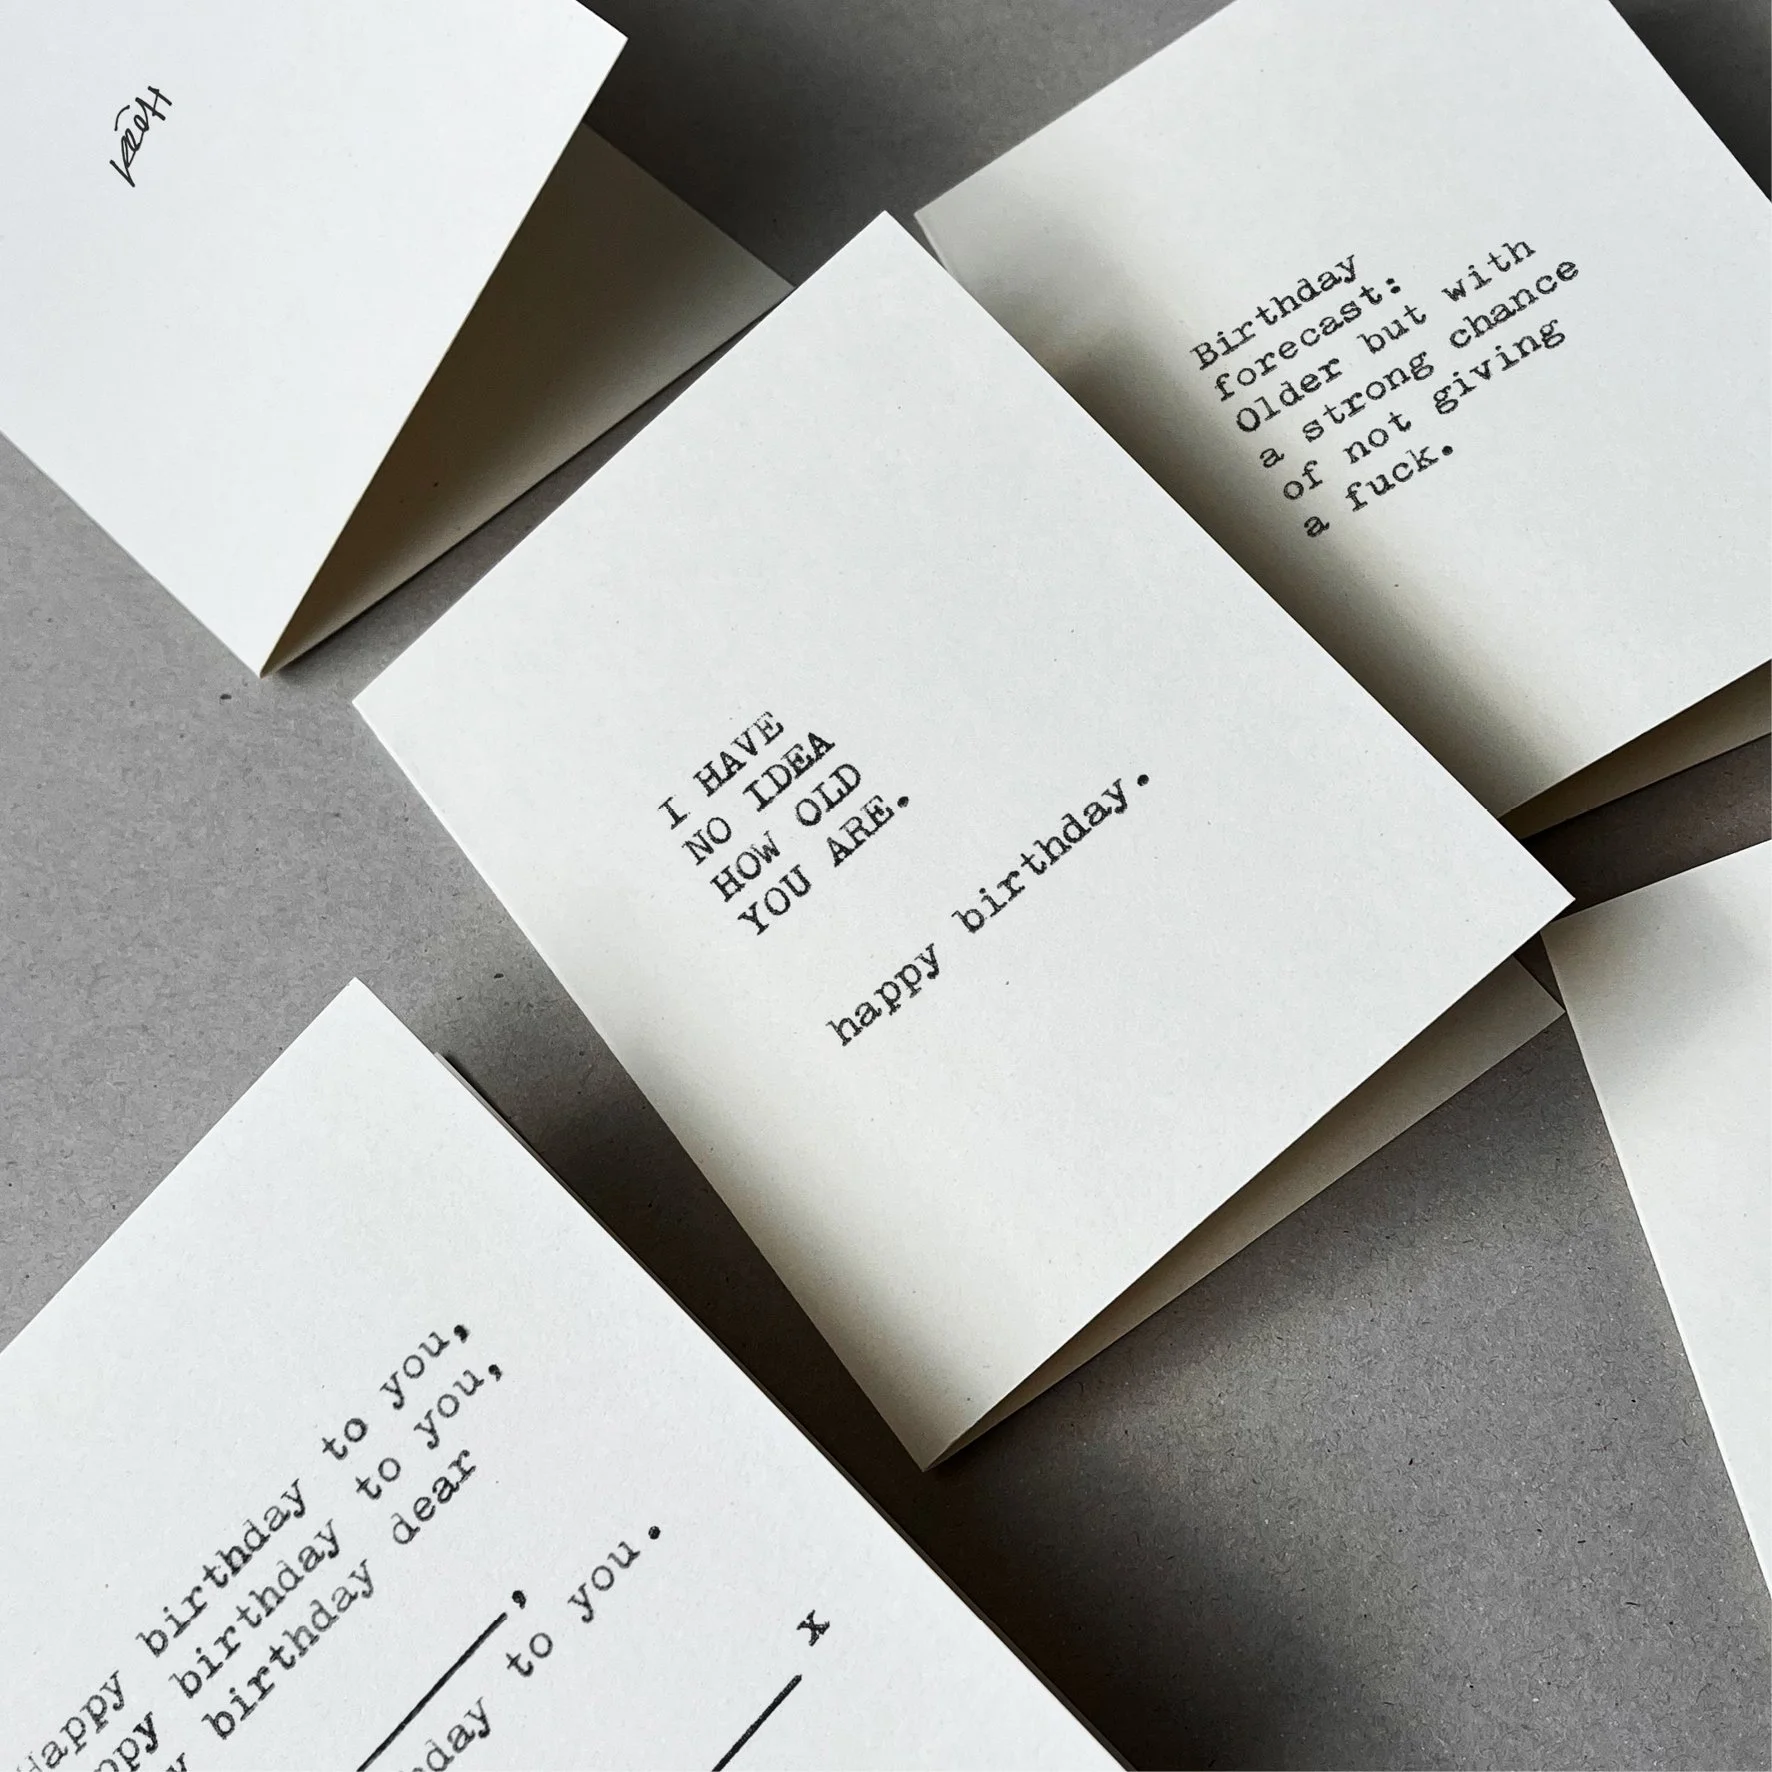 Birthday
forecast:
Older but with
a strong chance
of not giving
a fuck.
I HAVE
NO IDEA
HOW OLD
YOU ARE.
happy birthday.
Happy birthday to you,
birthday to you,
birthday dear
,
to you.
x